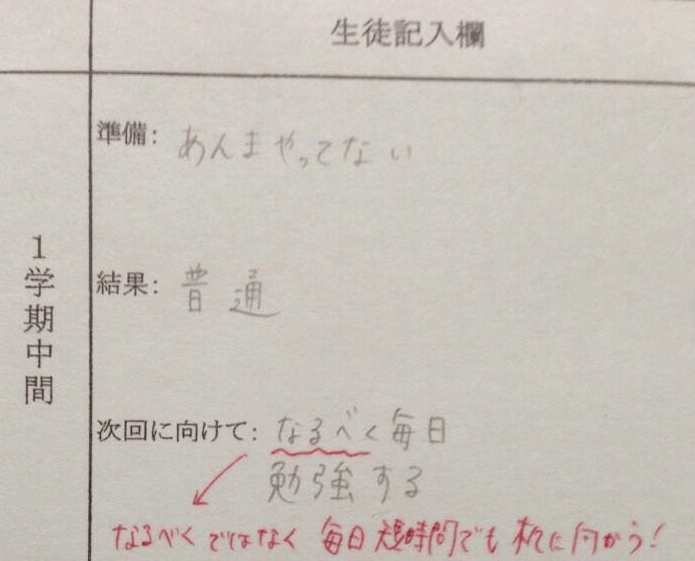 生徒記入欄
1学期中間
準備: あんまやってない
結果: 普通
次回に向けて: なるべく毎日
勉強する
なるべくではなく 毎日 短時間でも 机に向かう!